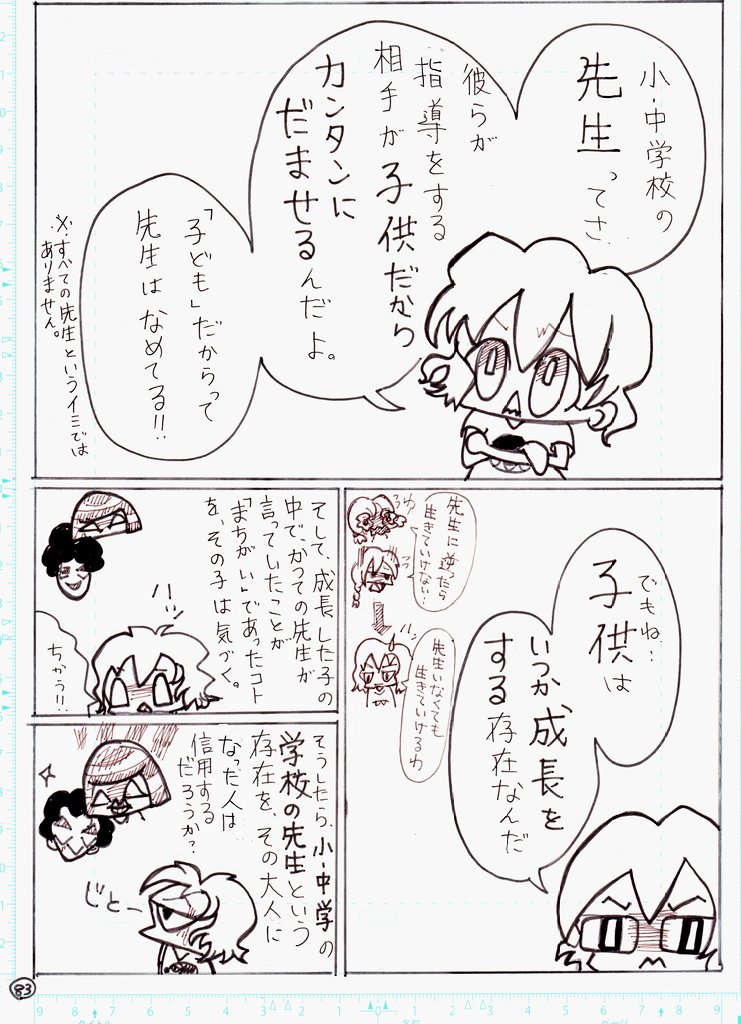 小・中学校の
先生ってさ
彼らが
指導をする
相手が子供だから
カンタンに
だませるんだよ。
「子ども」だからって
先生はなめてる!!
※すべての先生というイミでは
ありません。
でもね…
子供は
いつか成長を
する存在なんだ
先生に逆ったら
生きていけない…
先生いなくても
生きていけるわ
ハッ
そして、成長した子の
中で、かつての先生が
言っていたことが
「まちがい」であったコト
を、その子は気づく。
ハッ
ちがう!!
そうしたら、小・中学の
学校の先生という
存在を、その大人に
なった人は
信用する
だろうか?
じとー
83
9
8
7
6
5
4
3
2
1
0
1
2
3
4
5
6
7
8
9
タイトル
名前
ページ